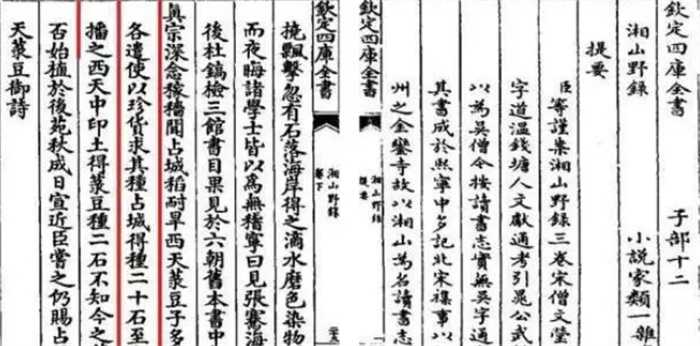 欽定四庫全書
子部十二
湘山野錄
小說家類一雜
提要
臣等謹案湘山野錄三卷宋僧文瑩
字道溫錢塘人文獻通考引晁公武
以為吳僧今按讀書志實無吳字通
其書成於熙寧中多記北宋襍事以
州之金鑾寺故以湘山為名讀書志
欽定四庫全書
湘山野錄
提要
一
欽定四庫全書
湘山野錄
卷下
挽飄擊忽有石落海岸得之滴水磨色染物
而夜晦諸學士皆以為無稽寧曰見張騫海
後杜鎬檢三館書目果見於六朝舊本書中
真宗深念稼穡聞占城稻耐旱西天菉豆子多
各遣使以珍貨求其種占城得種二十石至
播之西天中印土得菉豆種二石不知今之
否始植於後苑秋成日宣近臣嘗之仍賜占
天菉豆御詩